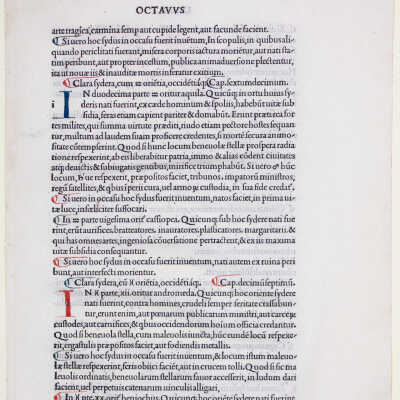 OCTAVVS
arte tragica, carmina semp aut cupide legent, aut facunde facient.
Si uero hoc sydus in occasu fuerit inuẽtum, In scopulis, in quibus ali-
quando periclitati fuerint, misera corporis iactura moriẽtur, aut nati sta-
tim peribunt, aut propter incestum, publica animaduersione plectentur,
ita ut noua illis & inaudita mortis inferatur exitium.
Clara sydera, cum ♒ oriẽtia, occidẽtiaqʒ Cap. sextumdecimũ.
IN duodecima parte ♒ oritur aquila. Quicunqʒ in ortu huius sy-
deris nati fuerint, ex cæde hominum & spoliis, habebũt uitæ sub
sidia, feras etiam capient pariter & domabũt. Erunt præterea for-
tes milites, qui summa uirtute præditi, nudo etiam pectore hostes sequan
tur, multum ad laudem suam proficere credentes, si mortẽ secura animo-
sitate contempserint. Quod si hunc locum beneuolæ stellæ prospera radia
tione respexerint, ab eis liberabitur patria, immo & alias eodẽt ciuitates
atqʒ deuictis & subiugatis gentibus, mirifice triumphabũt. Si uero ♂ hũc
locum, ♄ ue respexerit, præpositos faciet, tribunos, imparatorũ ministros,
regũ satellites, & qbus peri cura, uel armoʒ custodia, in sua fide credat.
Si uero in occasu hoc sydus fuerit inuentum, natos faciet, in prima ui-
tæ luce, infœliciter suffocari.
In ♒ parte uigesima orit cassiopea. Quicunqʒ sub hoc sydere nati fue
rint, erũt aurifices, bratteatores, inauratores, plasticatores, margaritarii, &
qui has omnes artes, ingeniosa cõuersatione pertractent, & ex iis maxima
uitæ subsidia consequantur.
Si uero hoc sydus in occasu fuerit inuentum, nati autem ex ruina peri
bunt, aut interfecti morientur.
Clara sydera, cũ ♓ oriẽtia, occidẽtiaqʒ. Cap. decimũ septimũ.
IN ♓ parte, xii. oritur andromeda. Quicunqʒ hoc oriente sydere
nati fuerint, contra homines, crudeli semper feritate crassabun-
tur, erunt enim, aut pœnarum publicarum ministri, aut carceꝝ
custodes, aut carnifices, & qbus occidendorum hoĩum officia credantur.
Quod si beneuola stella, cum maleuolis iuncta, hũc eundẽ locũ respexe-
rit, ergastulis præpositos faciet, aut fodiendis metallis.
Si uero hoc sydus in occasu fuerit inuentum, & locum istum maleuo-
læ stellæ respexerint, feris obiici faciẽt, aut in crucem tolli. Quod si cũ ma
leuolis ordinatis, beneuolarum stellarum fauor accesserit, in ludum dari
faciẽt, uel perpetuis catenarum uinculis alligari.
In ♓ pte, xx. orit heniochus. Quicunqʒ hoc sydus